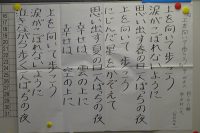 上を向いて歩こう
涙がこぼれないように
思い出す春の日一人ぽっちの夜
上を向いて歩こう
にじんだ星をかぞえて
思い出す夏の日一人ぽっちの夜
幸せは 雲の上に
幸せは 空の上に
上を向いて歩こう
涙がこぼれないように
泣きながら歩く一人ぽっちの夜